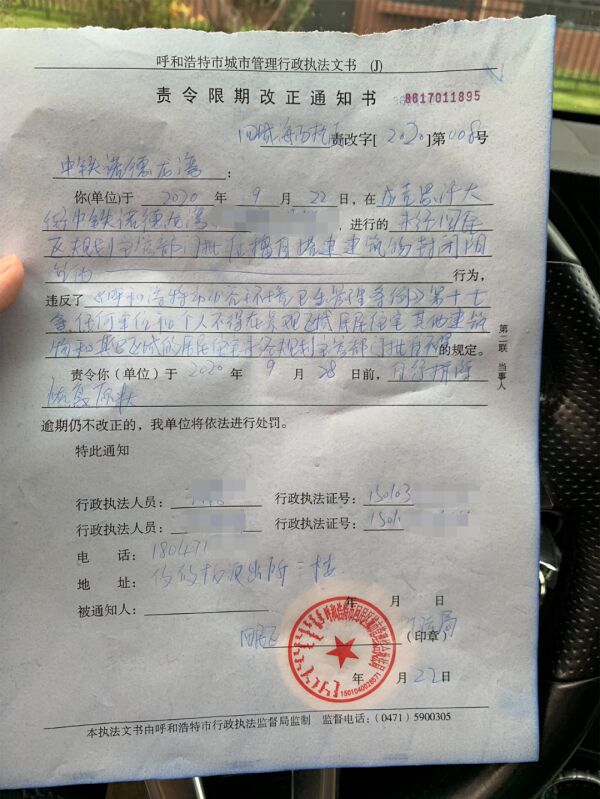 呼和浩特市城市管理行政执法文书 (J)
责令限期改正通知书 8617011895
责改字[2020]第008号
中铁诺德龙湾：
你(单位)于 2020 年 9 月 22 日，在成吉思汗大
街中铁诺德龙湾，进行的未经居民
区规划主管部门批准擅自搭建建筑物封闭阳
台的行为，
违反了《呼和浩特市市容环境卫生管理条例》第十七
条，任何单位和个人不得在景观区域居民住宅其他建筑
物和其他区域的居民住宅未经规划主管部门批准不得的规定。
责令你（单位）于 2020 年 9 月 28 日前，自行拆除
恢复原状
逾期仍不改正的，我单位将依法进行处罚。
特此通知
行政执法人员： 行政执法证号：15103
行政执法人员： 行政执法证号：1501
电 话：180471
地 址：派出所二楼
被通知人： 年 月 日
(印章)
1501040028071
年 月 22 日
本执法文书由呼和浩特市行政执法监督局监制 监督电话：(0471) 5900305
第二联 当事人